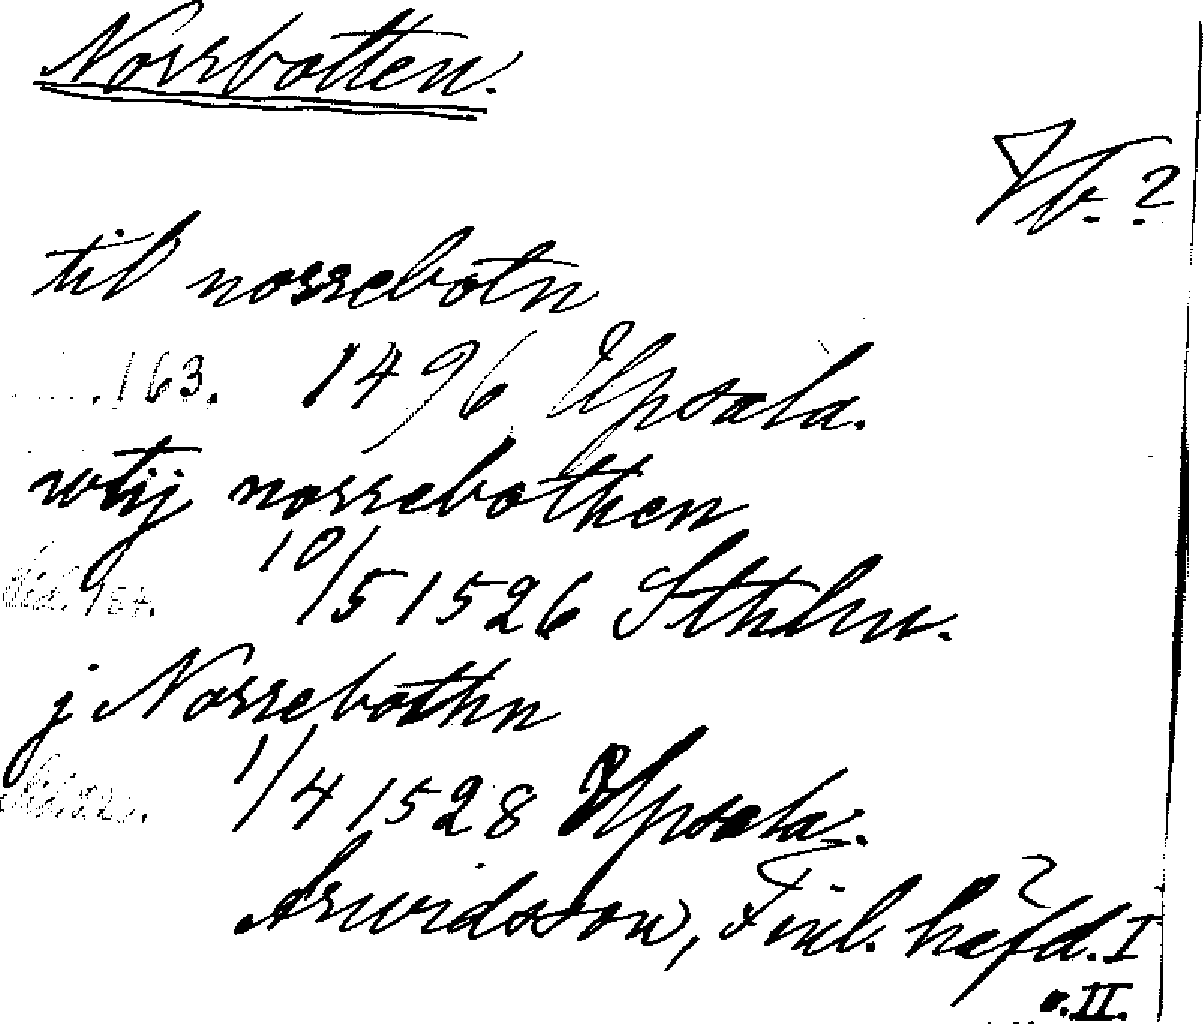 Norrbotten.
Vb. ?
til norrebotn
163. 1496 Upsala.
wtij norrebothen
10/5 1526 Sthlm.
j Norrebothn
1/4 1528 Upsala.
Arwidsson, Finl. häfd. I
o. II.